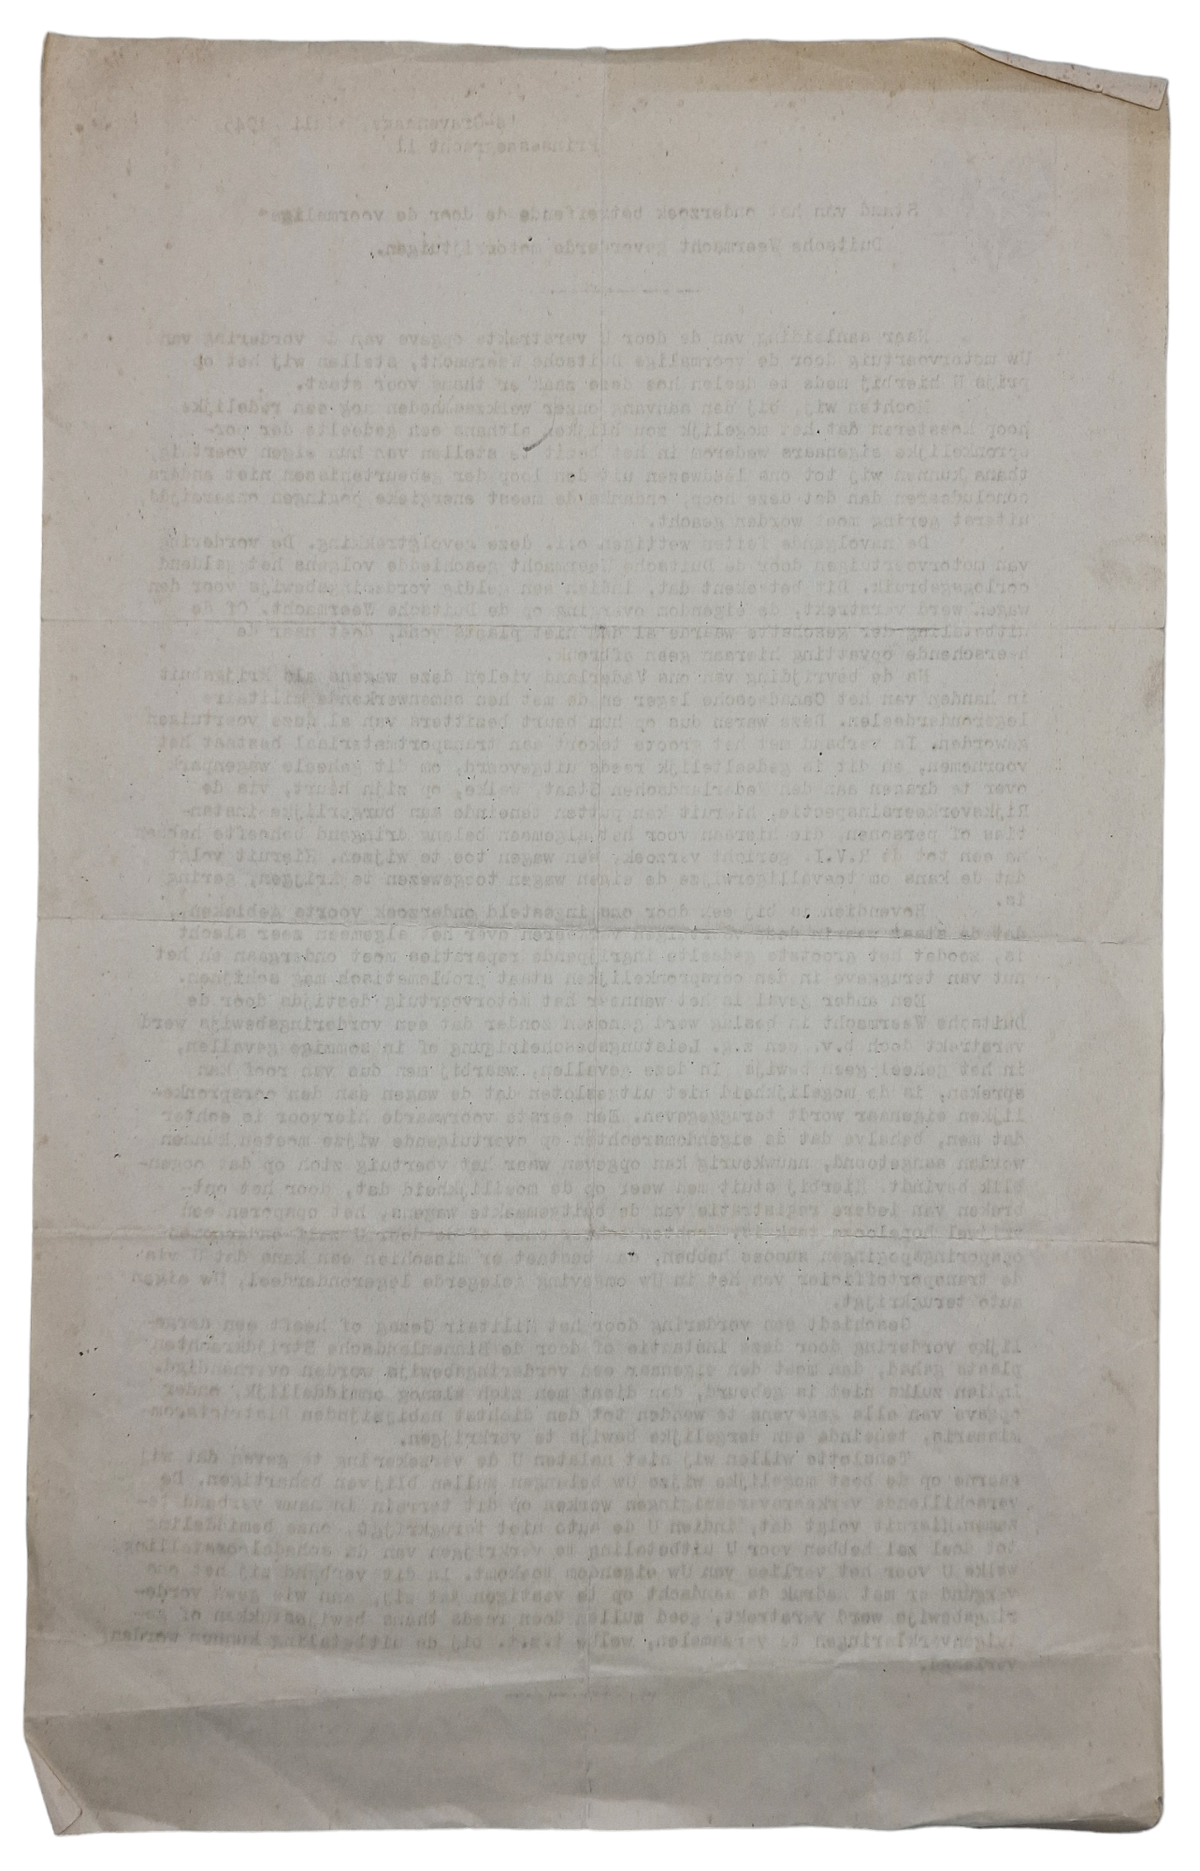 's-Gravenhage, Juli 1945
Prinsessegracht 11
Stand van het onderzoek betreffende de door de voormalige
Duitsche Weermacht gevorderde motorrijtuigen.
Naar aanleiding van de door U verstrekte opgave van de vordering van
Uw motorvoertuig door de voormalige Duitsche Weermacht, stellen wij het op
prijs U hierbij mede te deelen hoe deze zaak er thans voor staat.
Mochten wij, bij den aanvang onzer werkzaamheden nog een redelijke
hoop koesteren dat het mogelijk zou blijken althans een gedeelte der oor-
spronkelijke eigenaars wederom in het bezit te stellen van hun eigen voertuig,
thans kunnen wij tot ons leedwezen uit den loop der gebeurtenissen niet anders
concludeeren dan dat deze hoop, ondanks de meest energieke pogingen onzerzijds,
uiterst gering moet worden geacht.
De navolgende feiten wettigen o.i. deze gevolgtrekking. De vordering
van motorvoertuigen door de Duitsche Weermacht geschiedde volgens het geldend
oorlogsgebruik. Dit beteekent dat, indien een geldig vorderingsbewijs voor den
wagen werd verstrekt, de eigendom overging op de Duitsche Weermacht. Of de
uitbetaling der geschatte waarde al dan niet plaats vond, doet naar de
heerschende opvatting hieraan geen afbreuk.
Na de bevrijding van ons Vaderland vielen deze wagens als krijgsbuit
in handen van het Canadeesche leger en de met hen samenwerkende militaire
legeronderdeelen. Deze waren dus op hun beurt bezitters van al deze voertuigen
geworden. In verband met het groote tekort aan transportmateriaal bestaat het
voornemen, en dit is gedeeltelijk reeds uitgevoerd, om dit geheele wagenpark
over te dragen aan den Nederlandschen Staat, welke, op zijn beurt, via de
Rijksverkeersinspectie, hieruit kan putten teneinde aan burgerlijke instan-
ties of personen, die hieraan voor het algemeen belang dringend behoefte hebben
na een tot de R.V.I. gericht verzoek, een wagen toe te wijzen. Hieruit volgt
dat de kans om toevalligerwijze de eigen wagen toegewezen te krijgen, gering
is.
Bovendien is bij een door ons ingesteld onderzoek voorts gebleken,
dat de staat waarin deze voertuigen verkeeren over het algemeen zeer slecht
is, zoodat het grootste gedeelte ingrijpende reparaties moet ondergaan en het
nut van teruggave in den oorspronkelijken staat problematisch mag schijnen.
Een ander geval is het wanneer het motorvoertuig destijds door de
Duitsche Weermacht in beslag werd genomen zonder dat een vorderingsbewijs werd
verstrekt doch b.v. een z.g. Leistungsbescheinigung of in sommige gevallen,
in het geheel geen bewijs. In deze gevallen, waarbij men dus van roof kan
spreken, is de mogelijkheid niet uitgesloten dat de wagen aan den oorspronke-
lijken eigenaar wordt teruggegeven. Een eerste voorwaarde hiervoor is echter
dat men, behalve dat de eigendomsrechten op overtuigende wijze moeten kunnen
worden aangetoond, nauwkeurig kan opgeven waar het voertuig zich op dat oogen-
blik bevindt. Hierbij stuit men weer op de moeilijkheid dat, door het ont-
breken van iedere registratie van de buitgemaakte wagens, het opsporen een
vrijwel hopelooze taak is. Mochten echter onze of de door U zelf ondernomen
opsporingspogingen succes hebben, dan bestaat er misschien een kans dat U via
de transportofficier van het in Uw omgeving gelegerde legeronderdeel, Uw eigen
auto terugkrijgt.
Geschiedt een vordering door het Militair Gezag of heeft een derge-
lijke vordering door deze instantie of door de Binnenlandsche Strijdkrachten
plaats gehad, dan moet den eigenaar een vorderingsbewijs worden overhandigd.
Indien zulks niet is gebeurd, dan dient men zich alsnog onmiddellijk, onder
opgave van alle gegevens te wenden tot den dichtst nabijzijnden districtscom-
missaris, teneinde een dergelijke bewijs te verkrijgen.
Tenslotte willen wij niet nalaten U de verzekering te geven dat wij
gaarne op de best mogelijke wijze Uw belangen zullen blijven behartigen. De
verschillende verkeersvereenigingen werken op dit terrein in nauw verband te-
zamen. Hieruit volgt dat, indien U de auto niet terugkrijgt, onze bemiddeling
tot doel zal hebben voor U uitbetaling te verkrijgen van de schadeloosstelling
welke U voor het verlies van Uw eigendom toekomt. In dit verband zij het ons
vergund er met nadruk de aandacht op te vestigen dat zij, aan wie geen vorde-
ringsbewijs werd verstrekt, goed zullen doen reeds thans bewijsstukken of ge-
tuigenverklaringen te verzamelen, welke t.z.t. bij de uitbetaling kunnen worden
verlangd.